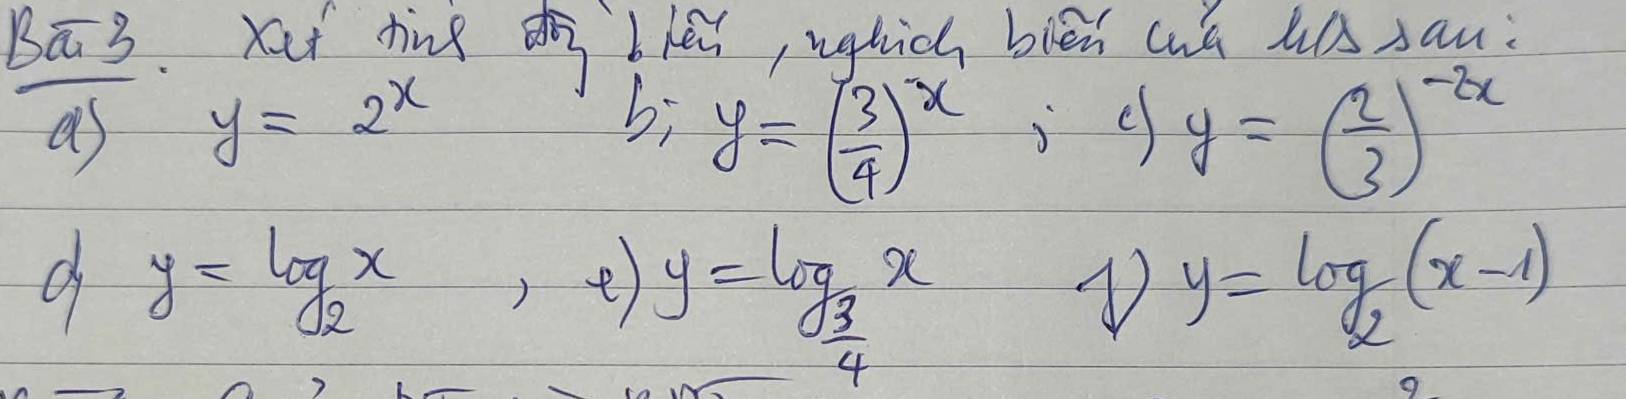 Bài 3. Xét tính đồng biến, nghịch biến của h/s sau:
a) y = 2^x b; y = (3/4)^x ; c) y = (2/3)^{-2x}
d) y = log_2 x , e) y = log_{3/4} x f) y = log_2 (x - 1)